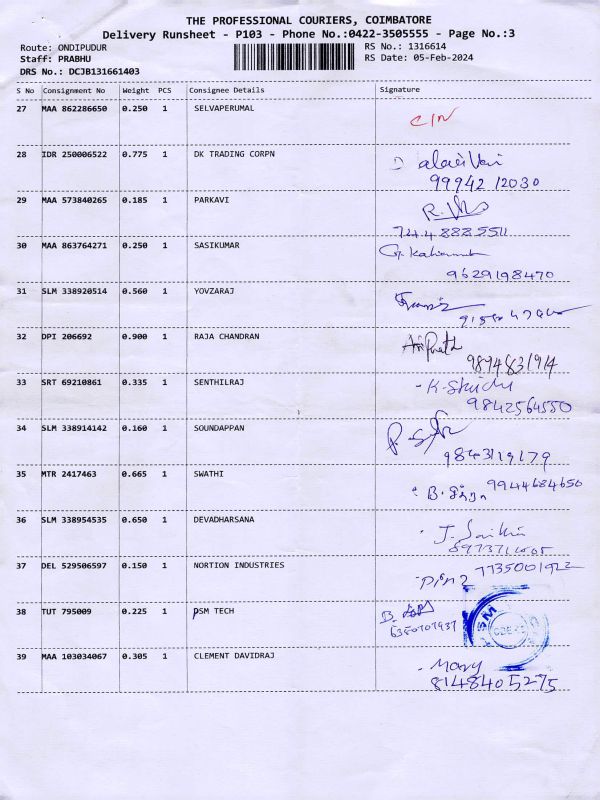 THE PROFESSIONAL COURIERS, COIMBATORE
Delivery Runsheet - P103 - Phone No.:0422-3505555 - Page No.:3
Route: ONDIPUDUR
RS No.: 1316614
Staff: PRABHU
RS Date: 05-Feb-2024
DRS No.: DCJB131661403
S No Consignment No Weight PCS Consignee Details Signature
27 MAA 862286650 0.250 1 SELVAPERUMAL
C/N
28 IDR 250006522 0.775 1 DK TRADING CORPN
99942 12030
29 MAA 573840265 0.185 1 PARKAVI
30 MAA 863764271 0.250 1 SASIKUMAR
9629198470
31 SLM 338920514 0.560 1 YOVZARAJ
32 DPI 206692 0.900 1 RAJA CHANDRAN
33 SRT 69210861 0.335 1 SENTHILRAJ
9842564550
34 SLM 338914142 0.160 1 SOUNDAPPAN
9843119179
35 MTR 2417463 0.665 1 SWATHI
9944684650
36 SLM 338954535 0.650 1 DEVADHARSANA
37 DEL 529506597 0.150 1 NORTION INDUSTRIES
38 TUT 795009 0.225 1 PSM TECH
39 MAA 103034067 0.305 1 CLEMENT DAVIDRAJ
Mary
8148405275